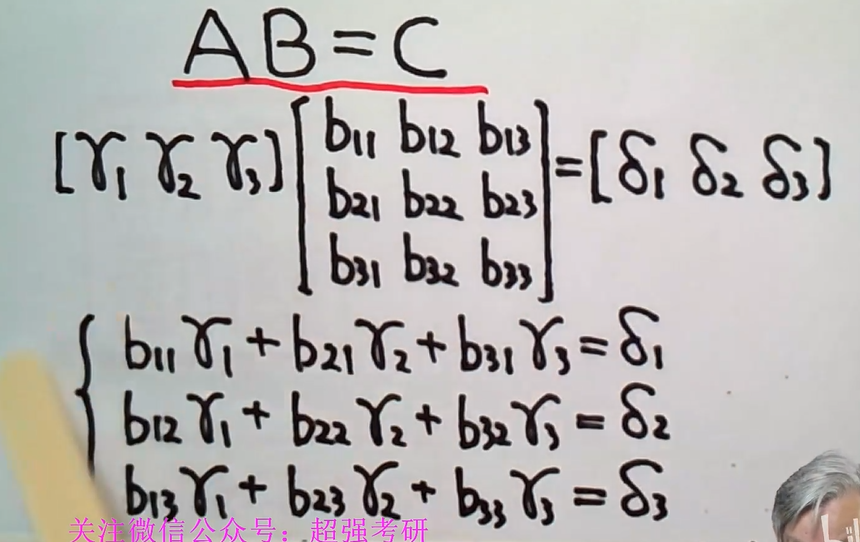 AB=C
[γ₁ γ₂ γ₃] [b₁₁ b₁₂ b₁₃
b₂₁ b₂₂ b₂₃
b₃₁ b₃₂ b₃₃] = [δ₁ δ₂ δ₃]
{ b₁₁γ₁ + b₂₁γ₂ + b₃₁γ₃ = δ₁
b₁₂γ₁ + b₂₂γ₂ + b₃₂γ₃ = δ₂
b₁₃γ₁ + b₂₃γ₂ + b₃₃γ₃ = δ₃
关注微信公众号：超强考研